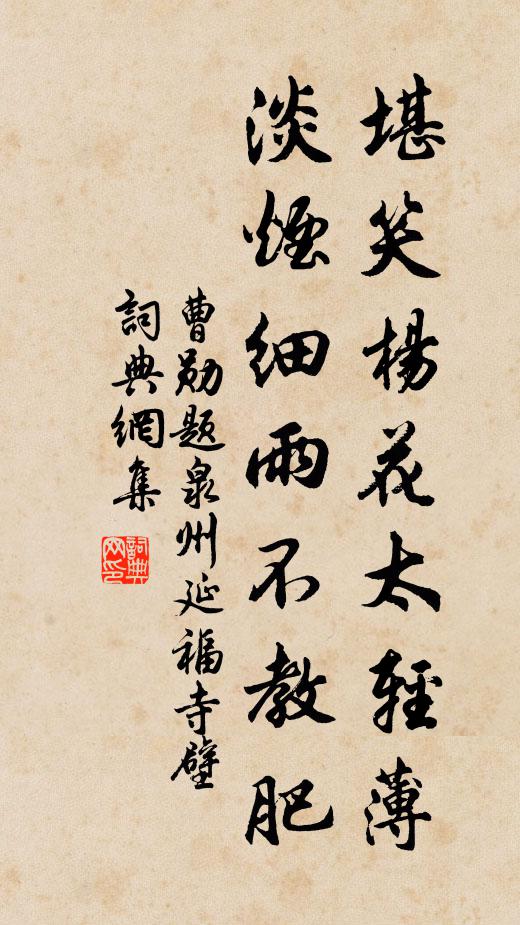 堪笑楊花太輕薄
淡煙細雨不教肥
曹勛题泉州延福寺壁
詞典網集
詞典网印